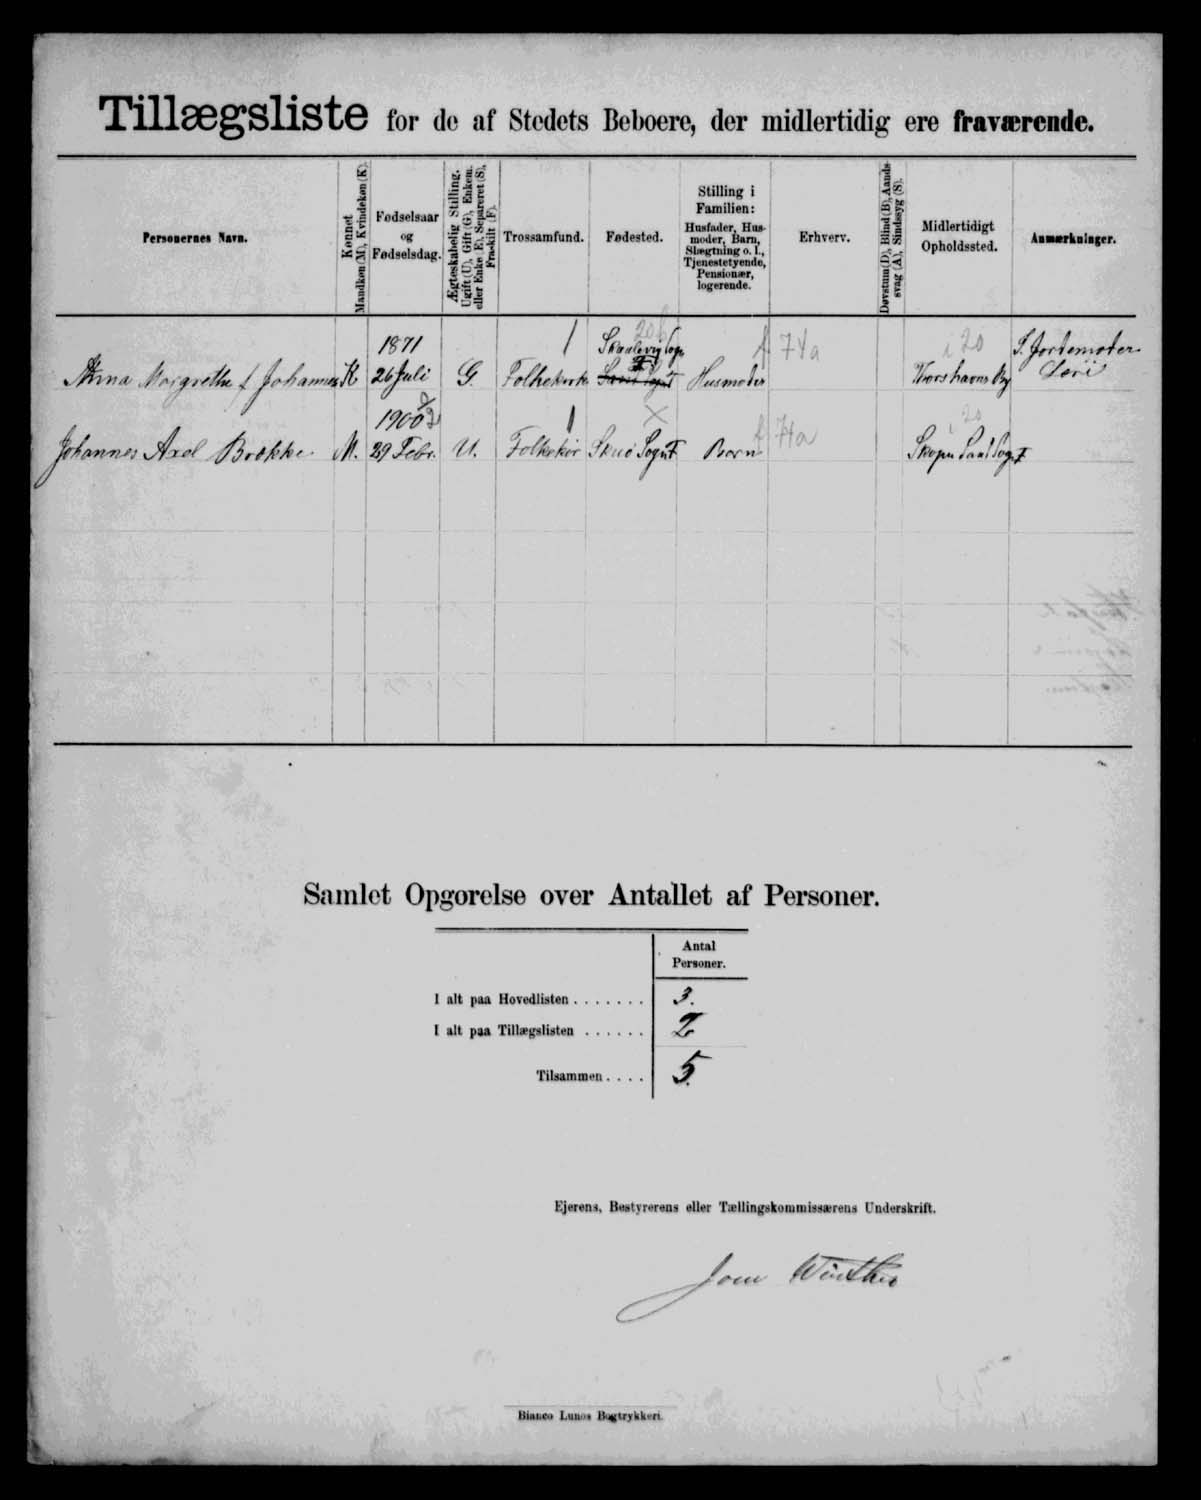 Tillægsliste for de af Stedets Beboere, der midlertidig ere fraværende.
Personernes Navn.
Kønnet
Mandkøn (M), Kvindekøn (K).
Fødselsaar
og
Fødselsdag.
Ægteskabelig Stilling.
Ugift (U), Gift (G), Enkem.
eller Enke (E), Separeret (S),
Fraskilt (F).
Trossamfund.
Fødested.
Stilling i
Familien:
Husfader, Hus-
moder, Barn,
Slægtning o. l.,
Tjenestetyende,
Pensionær,
logerende.
Erhverv.
Døvstum (D), Blind (B), Aands-
svag (A), Sindssyg (S).
Midlertidigt
Opholdssted.
Anmærkninger.
1871 1 Skaalevig Sogn 74a i 20 S. Jordemoder
Anna Margrethe f. Johannes K 26 Juli G. Folkekirke Husmoder Thorshavns By Læri
1900 1 X 74a i 20
Johannes Axel Brokke M. 29 Febr. U. Folkekir Skuø Sogn F Barn Skopu Sand Sogn F
Samlet Opgørelse over Antallet af Personer.
Antal
Personer.
I alt paa Hovedlisten . . . . . . . 3.
I alt paa Tillægslisten . . . . . . 2
Tilsammen . . . . 5.
Ejerens, Bestyrerens eller Tællingskommissærens Underskrift.
Joen Winther
Bianco Lunos Bogtrykkeri.